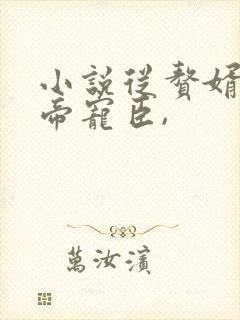 小說從贅婿
帝寵臣,
萬汝濱